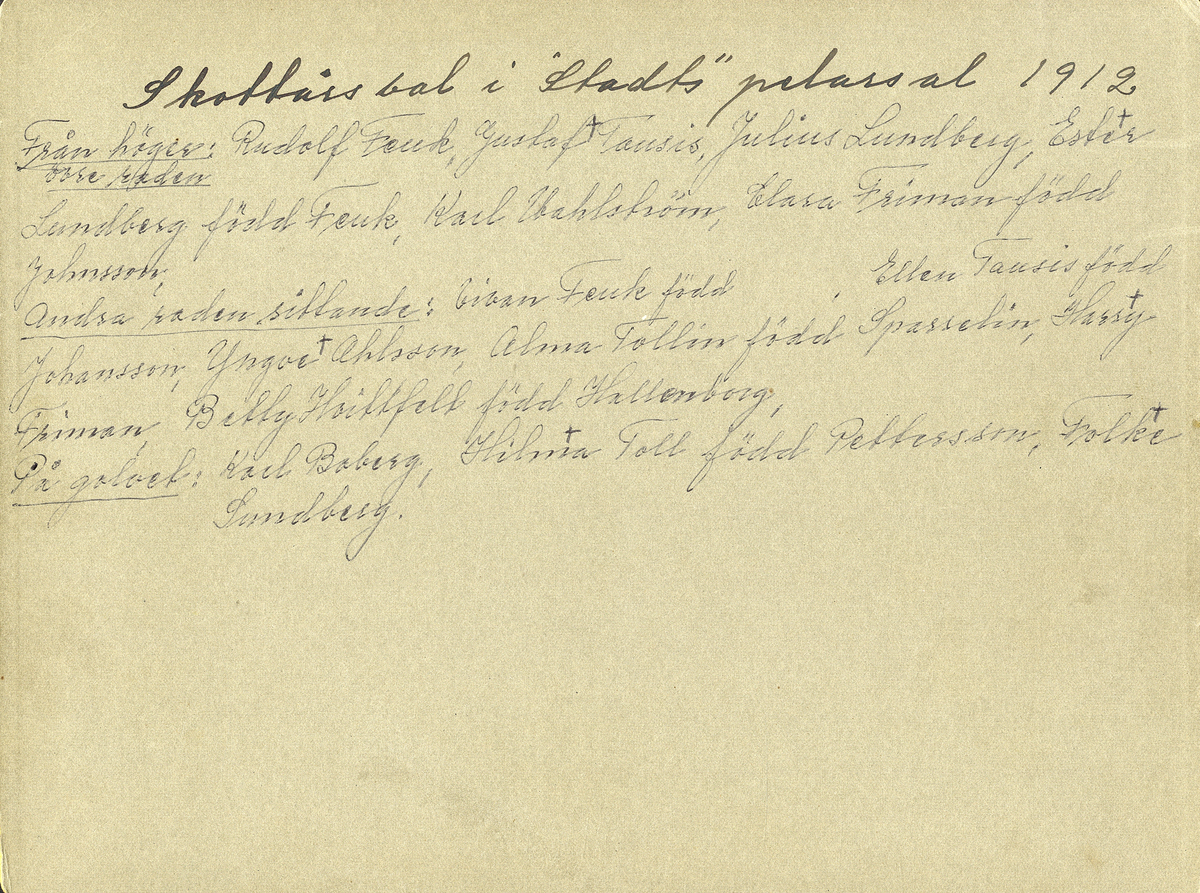 Skottårsbal i "Stadts" pelarsal 1912
Från höger: Rudolf Feuk, Gustaf† Tausis, Julius Lundberg, Ester†
övre raden
Lundberg född Feuk, Karl Wahlström, Clara Friman född
Johnsson,
Andra raden sittande: Vivan Feuk född , Ellen Tausis född
Johansson, Yngve† Ahlsson, Alma Tollin född Sparrelin, Harry†
Friman, Betty Hvittfelt född Hallenborg,
På golvet: Karl Boberg, Hilma† Toll född Pettersson, Folke†
Lundberg.